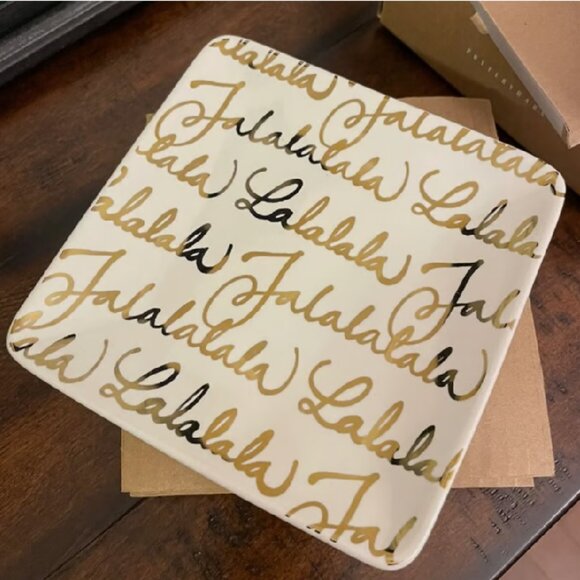 alalala
Falalalala Falalalalala
lala Lalalalala Lalalala
alalalala Falalalalala Fal
Falalalalala Lalalal
ala Lalalalala Fal
POTTERY BARN